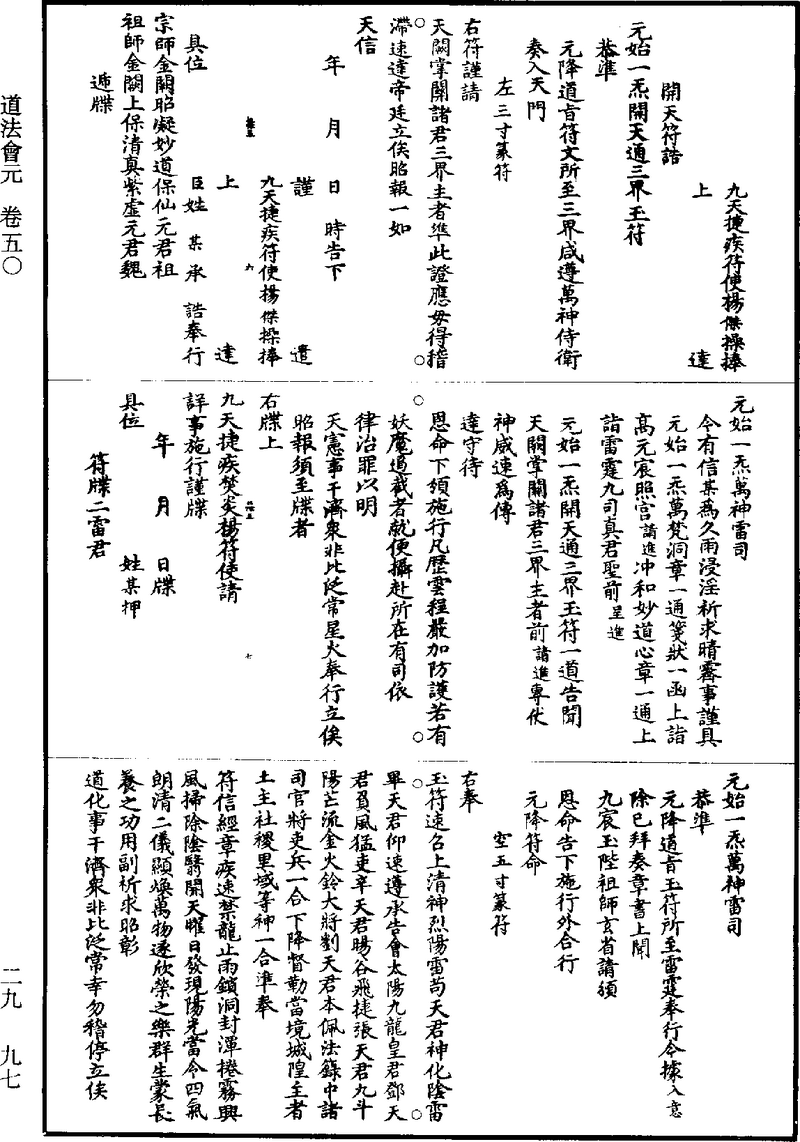 道法會元　卷五〇
二九　九七
九天捷疾符使楊傑操捧
上　達
開天符誥
元始一炁開天通三界玉符
恭準
元降道旨符文所至三界咸遵萬神侍衛
奏入天門
左三寸篆符
右符謹請
天闕掌關諸君三界主者準此證應毋得稽
滯速達帝廷立俟昭報一如
天信
年　月　日　時告下
謹　遣
九天捷疾符使楊傑操捧
上　達
具位　臣姓　某承　誥奉行
宗師金闕昭凝妙道保仙元君祖
祖師金闕上保清真紫虛元君魏
遞牒
元始一炁萬神雷司
今有信某為久雨浸淫祈求晴霽事謹具
元始一炁萬梵洞章一通箋狀一函上詣
高元宸照宮請進冲和妙道心章一通上
詣雷霆九司真君聖前呈進
元始一炁開天通三界玉符一道告聞
天闕掌關諸君三界主者前請進專伏
神威速為傳
達守待
恩命下頒施行凡歷雲程嚴加防護若有
妖魔遏截者就便攝赴所在有司依
律治罪以明
天憲事干濟衆非比泛常星火奉行立俟
昭報須至牒者
右牒上
九天捷疾焚炎楊符使請
詳事施行謹牒
年　月　日牒
具位　姓某押
符牒二雷君
元始一炁萬神雷司
恭準
元降道旨玉符所至雷霆奉行今據入意
除已拜奏章書上聞
九宸玉陛祖師玄省請頒
恩命告下施行外合行
元降符命
空五寸篆符
右奉
玉符速召上清神烈陽雷苟天君神化陰雷
畢天君仰速遵承告會太陽九龍皇君鄧天
君負風猛吏辛天君暘谷飛捷張天君九斗
陽芒流金火鈴大將劉天君本佩法籙中諸
司官將吏兵一合下降督勒當境城隍主者
土主社稷里域等神一合準奉
符信經章疾速禁龍止雨鎖洞封渾捲霧興
風掃除陰翳開天曜日發現陽光當令四氣
朗清二儀顯煥萬物遂欣榮之樂群生蒙長
養之功用副祈求昭彰
道化事干濟衆非比泛常幸勿稽停立俟